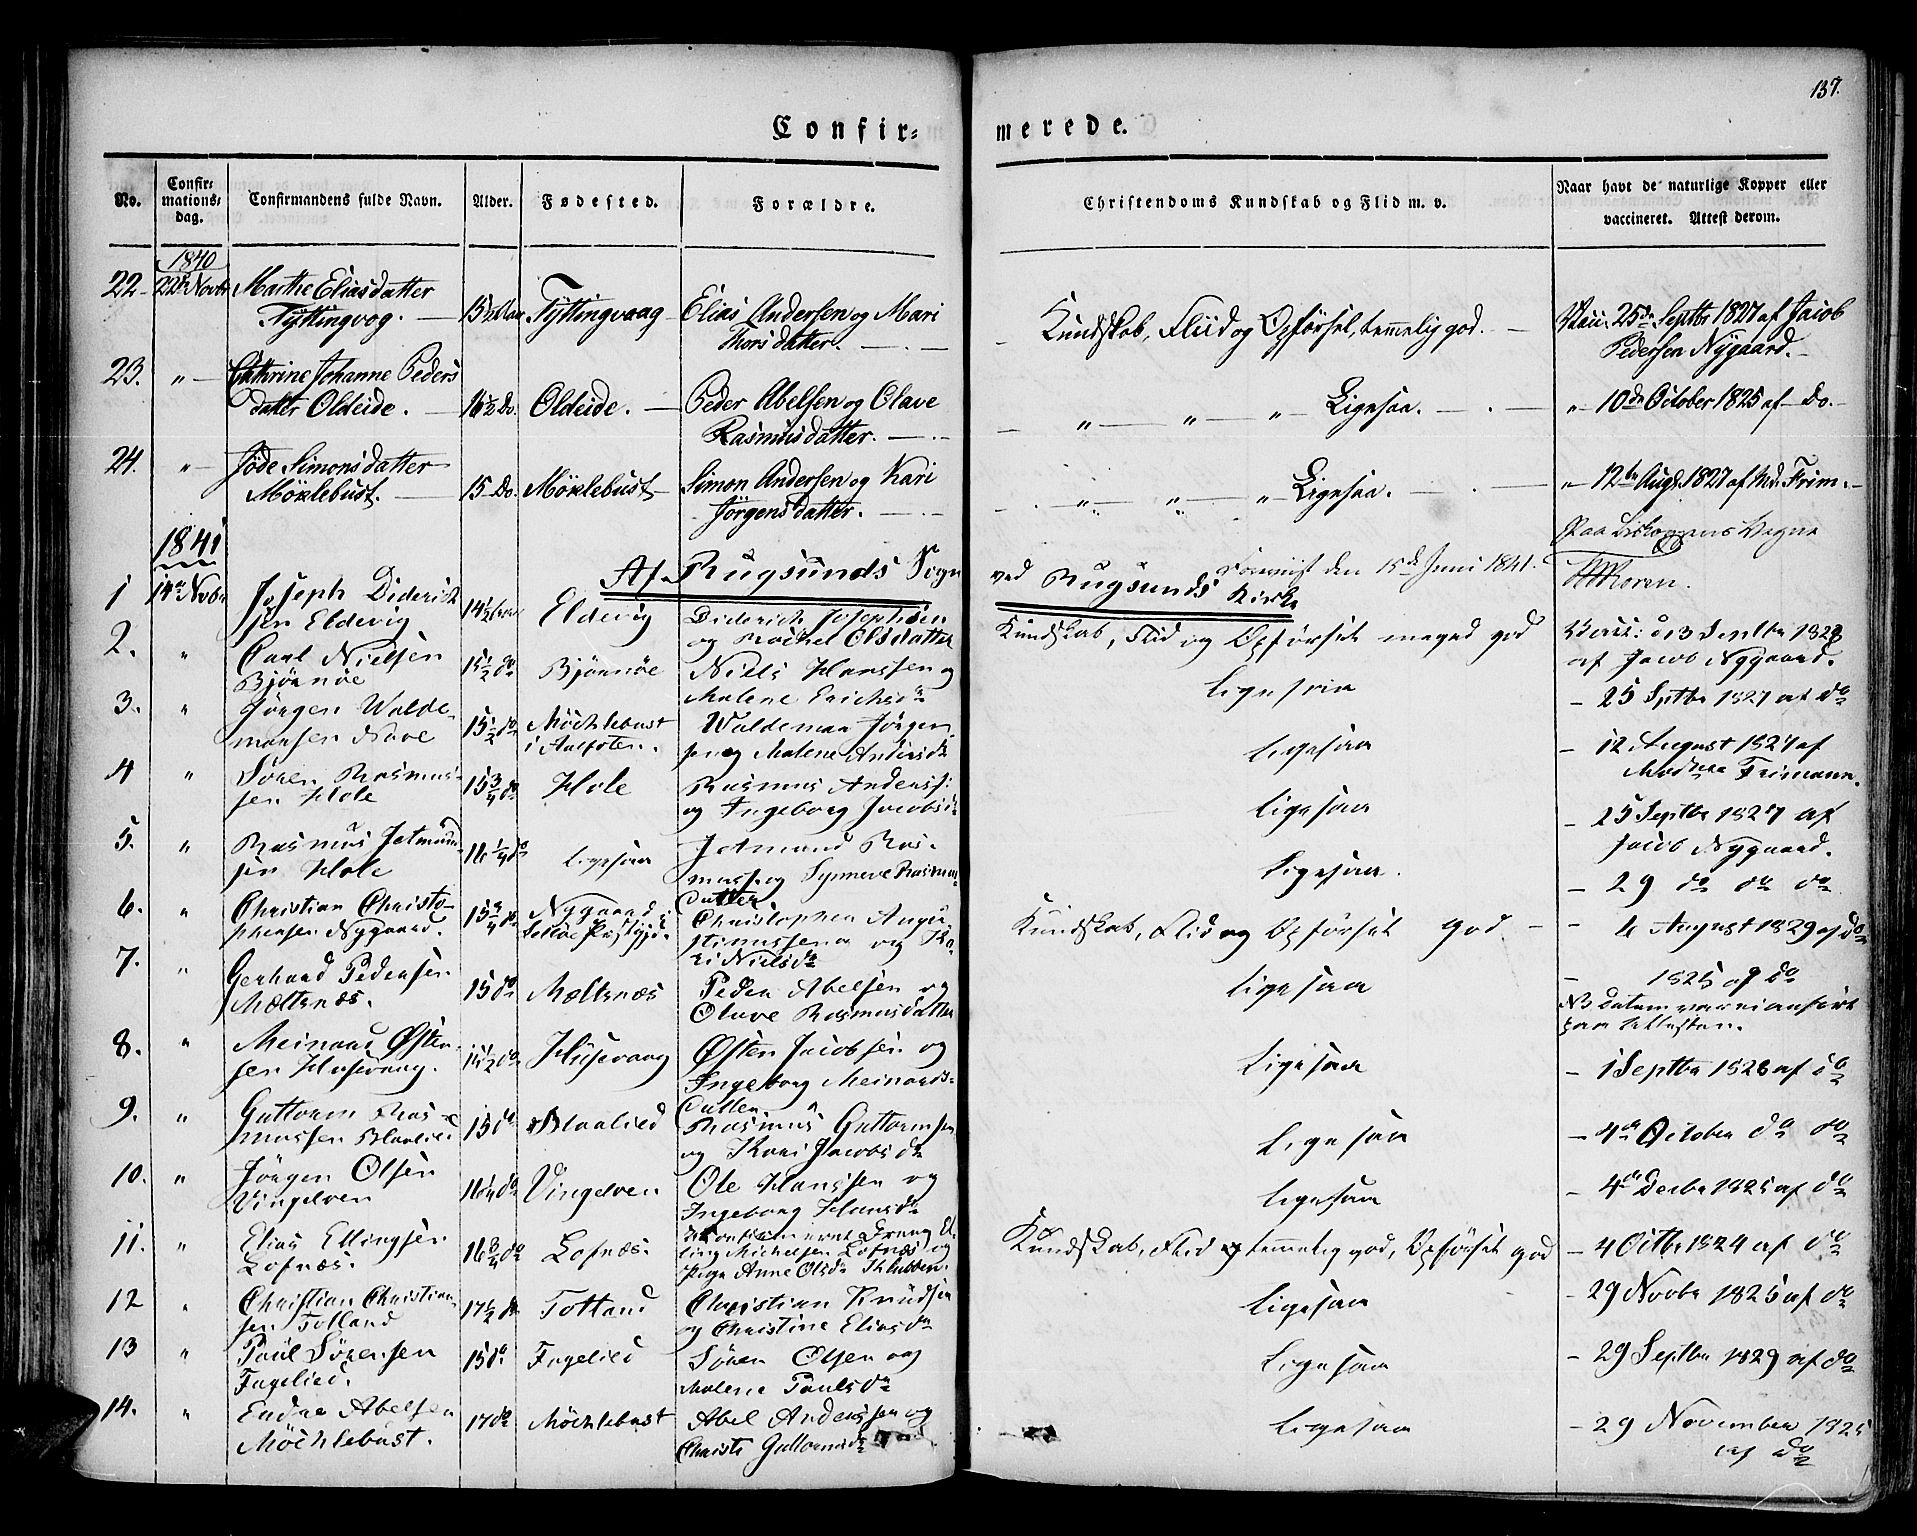 137.
Confir=
merede.
No. Confir=mations=dag. Confirmandens fulde Navn. Alder. Fødested. Forældre. Christendoms Kundskab og Flid m. v. Naar havt de naturlige Kopper eller vaccineret. Attest derom.
1840
22 22de Novbr Marthe Eliasdatter Tyttingvaag Elias Andersen og Mari Kundskab, Fliid og Opførsel, temmelig god. Vacc. 25de Septbr 1827 af Jacob
Tyttingvog. Thorsdatter. Pedersen Nygaard.
23. " Cathrine Johanne Peders
datter Oldeide. 16½ Do. Oldeide. Peder Abelsen og Olave " " " Ligesaa. " 10de October 1825 af Do.
Rasmusdatter.
24. " Jøde Simonsdatter Simon Andersen og Kari " " " Ligesaa. " 12te Aug. 1827 af Md. Frim.
Møklebust. 15 Do. Møklebust Jørgensdatter.
Paa Biskoppens Vegne
1841 Af Rugsunds Sogn ved Rugsunds Kirke den 15de Juni 1841.
1 14de Novbr Joseph Diderich
sen Eldevig 14½ Eldevig Diderich Josephsen
og Rachel Olsdatter Kundskab, Flid og Opførsel meged god Vacc: d 3 Septbr 1828
af Jacob Nygaard.
2. " Carl Nielsen
Bjørnøe 15½ do Bjørnøe Niels Hanssen og
Malene Erichsdr Ligesaa - 25 Sptbr 1827 af do
3. " Jørgen Walde-
marsen Nave 15½ do Möchlebust
i Aalfoten. Waldemar Jørgen
sen og Malene Andersdr Ligesaa - 12 August 1827 af
Madme Frimann.
4 " Søren Rasmus-
sen Hole 15¾ do Hole Rasmus Anderss:
og Ingeborg Jacobsdr Ligesaa - 25 Septbr 1827 af
Jacob Nygaard.
5. " Rasmus Jetmund
sen Hole 16¼ do Ligesaa Jetmund Ras-
muss. og Synneve Rasmus
datter Ligesaa. - 29 do do do
6. " Christian Christo-
phersen Nygaard. 15¾ do Nygaard i Christopher Augu
stinussen og Ka
ri Nielsdr Kundskab, Flid og Opførsel god - 6 August 1829 af do
7. " Gerhard Pedersen
Mæltsnæs. 15 do Mæltsnæs Peder Abelsen og
Olave Rasmusdatter Ligesaa - 1825 af do
NB Datum var ei anført
paa Attesten.
8. " Meinard Østen-
sen Husevaag. ½ do Husevaag Østen Jacobsen og
Ingeborg Meinards-
datter Ligesaa - 1 Septbr 1826 af do
9. " Guttorm Ras-
mussen Blaalied 15 do Blaalied Rasmus Guttormsen
og Kari Jacobsdr Ligesaa - 4de October do do
10. " Jörgen Olsen
Vingelven 16¼ do Vingelven Ole Hanssen og
Ingeborg Hansdr Ligesaa - 4de Decbr 1825 af do
11. " Elias Ellingsen
Lofnæs. 16¾ do Lofnæs. Ukonfirmeret Dreng El
ling Michelsen Lofnæs og
Pige Anne Olsdr Klubben. Kundskab, Flid og temmelig god, Opførsel god - 4 Octbr 1824 af do
12 " Christian Christian-
sen Totland 17½ do Totland Christian Knudsen
og Christine Eliasdr Ligesaa - 29 Novbr 1825 af do
13 " Paul Sørensen
Fagelied. 15 do Fagelied Søren Olsen og
Malene Paulsdr Ligesaa - 29 Septbr 1829 af do
14. " Endre Abelsen
Möchlebust. 17 do Möchlebust Abel Anderssen og
Christi Guttormsdr Ligesaa - 29 November 1825
af do